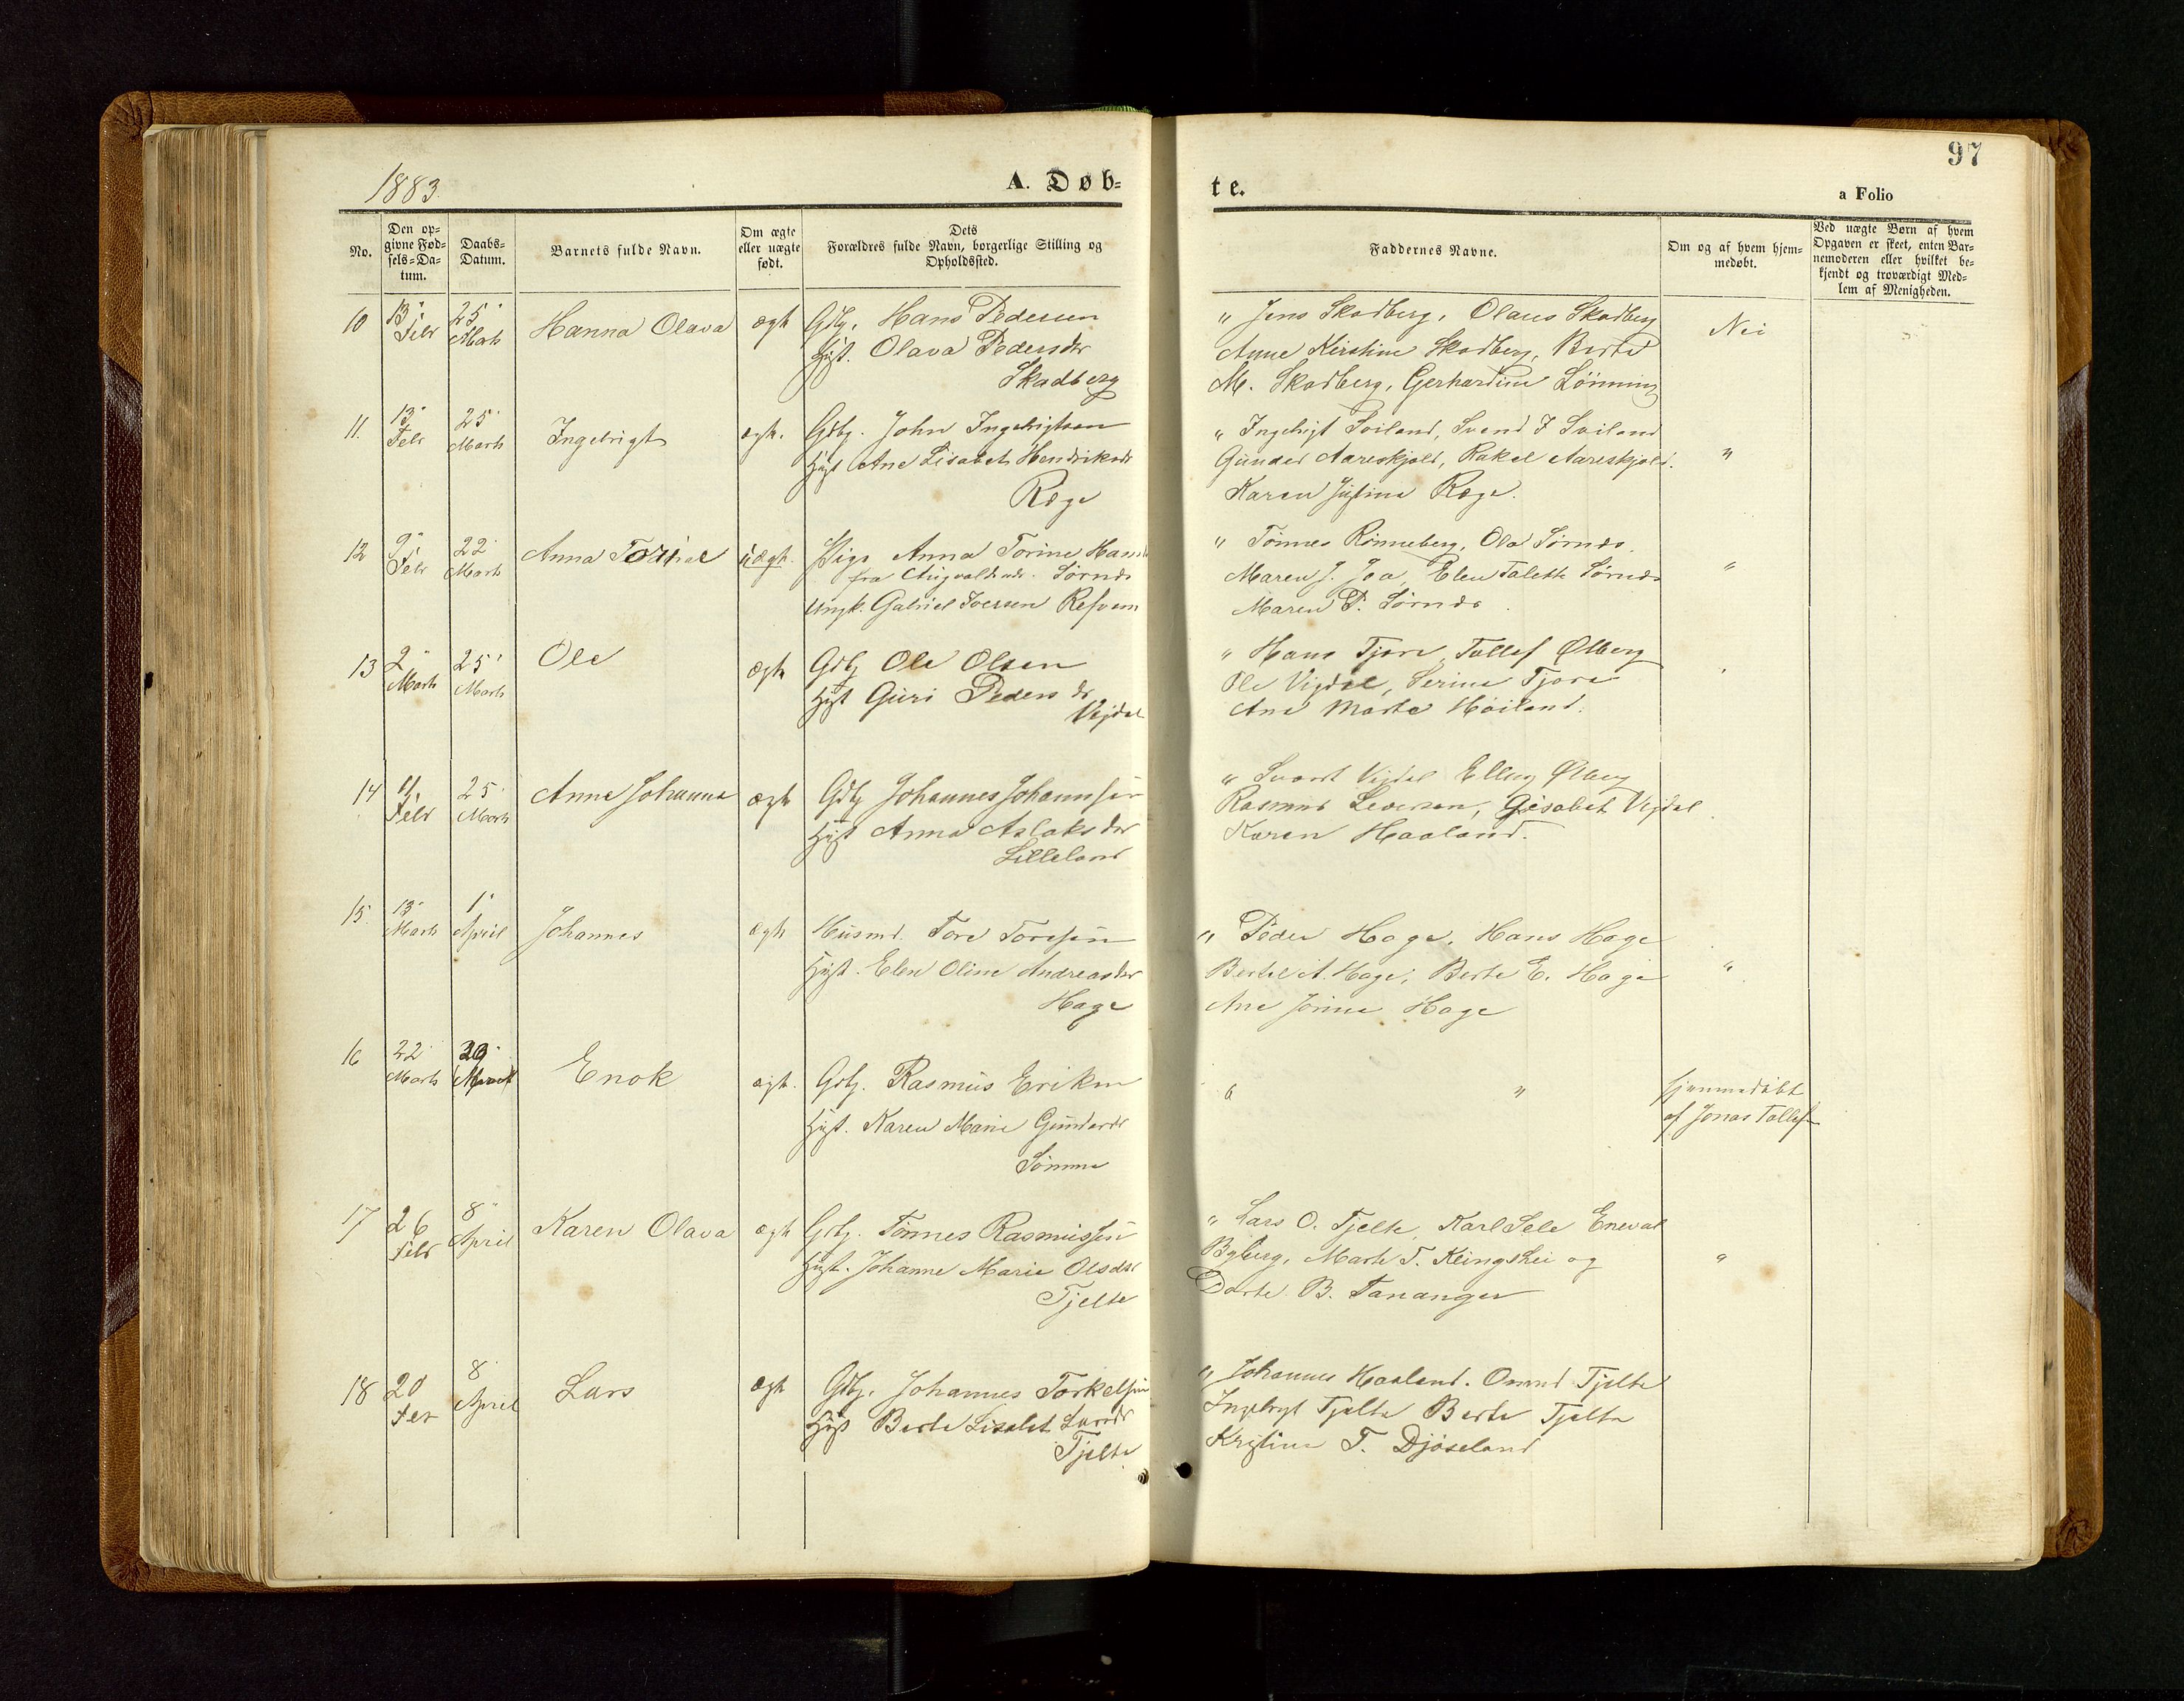 1883.
A. Døb-
te.
97
a Folio
No.
Den op-
givne Fød-
sels-Da-
tum.
Daabs-
Datum.
Barnets fulde Navn.
Om ægte
eller uægte
født.
Dets
Forældres fulde Navn, borgerlige Stilling og
Opholdssted.
Faddernes Navne.
Om og af hvem hjem-
medøbt.
Ved uægte Børn af hvem
Opgaven er skeet, enten Bar-
nemoderen eller hvilket be-
kjendt og troværdigt Med-
lem af Menigheden.
10 13 Febr 25 Marts Hanna Olava ægte Gdbg. Hans Pedersen
Hust. Olava Pedersdr
Skadberg
" Jens Skadberg, Olaus Skadberg
Anne Kirstine Skadberg, Berte
M. Skadberg, Gerhardine Lönning
Nei
11. 13 Febr 25 Marts Ingebrigt ægte. Gdbg. John Ingebrigtsen
Hust Ane Lisabeth Hendriksdr
Ræge
" Ingebrigt Soiland, Svend I Soiland
Gunder Aareskjold, Rakel Aareskjold.
Karen Justine Ræge.
"
12 9 Febr 22 Marts Anna Torine uægte. Pige Anna Torine Hans
fra Augvaldsnæs. Sørnæs
Ungk. Gabriel Iversen Refsnæs
" Tönnes Rönneberg, Ola Sörnæs.
Maren J. Joa, Elen Talette Sörnæs
Maren P. Sörnæs.
"
13 2 Marts 25 Marts Ole ægte Gdbg Ole Olsen
Hust Guri Pedersdr
Vigdel
" Hans Tjora, Tollef Ølberg
Ole Vigdel, Serine Tjora
Ane Marta Høiland.
"
14 11 Febr 25 Marts Anne Johanna ægte Gdbg Johannes Johannsen
Hust Anna Aslaksdr
Lilleland
" Svend Vigdel Elling Ølberg
Rasmus Seversen, Gisabet Vigdel
Karen Haaland.
15 13 Marts 1 April Johannes ægte Husmd. Tore Toresen
Hust. Elen Oline Andreasdr
Hage
" Peder Hage, Hans Hage
Bertel A. Hage, Berte E. Hage
Ane Jorine Hage
"
16 22 Marts 29 Marts Enok ægte. Gdbg. Rasmus Eriksen
Hust. Karen Marie Gundersdr
Sömme
" "
hjemmedøbt
af Jonas Tollefsen
17 26 Febr 8 April Karen Olava ægte Gdbg. Tönnes Rasmussen
Hust. Johanne Marie Olsdr
Tjelte
" Lars O. Tjelte, Karl Sele Enevald
Byberg, Marte T. Klingshei og
Dorte B. Tananger
"
18 20 Febr 8 April Lars ægte Gdbg. Johannes Torkelsen
Hust Berte Lisabet Larsdr
Tjelte
" Johannes Haaland. Omund Tjelte
Ingebrigt Tjelte Berte Tjelta
Kristine T. Djöseland